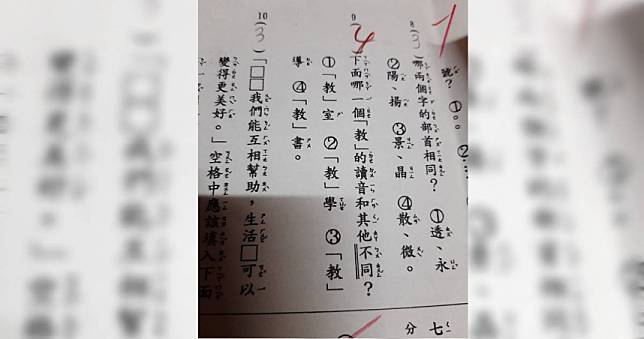 七
分
號？①。 ②：
8(3)哪兩個字的部首相同？①透、永
②陽、揚 ③景、晶 ④散、微。
9(4)下面哪一個「教」的讀音和其他不同？
①「教」室 ②「教」學 ③「教」
導 ④「教」書。
10(3)「□□我們能互相幫助，生活□可以
變得更美好。」空格中應該填入下面